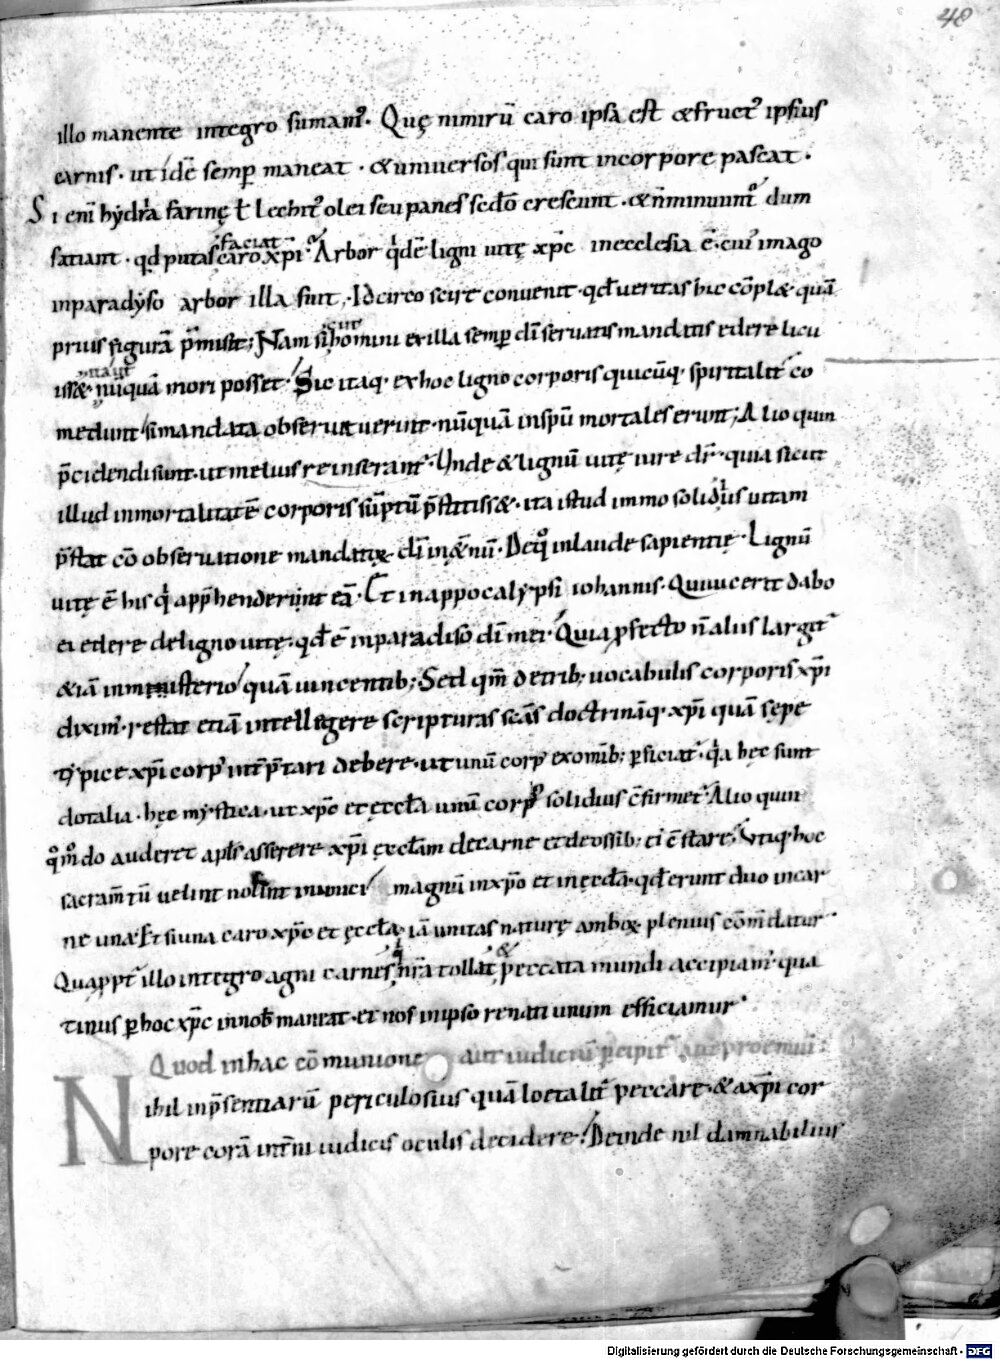 48
illo manente integro sumam᷒. Quę nimirū caro ipsa est & fruct᷒ ipsius
carnis. ut idē semp̄ maneat. & uniuersos qui sunt incorpore pascat.
Si eni᷒ hydria farinę ł lechit᷒ olei seu panes sc̄do crescunt. & n̄ minuunt᷒ dum
satiant. qd putas faciat caro xp̄i? Arbor q'dē ligni uitę xp̄c inecclesia ē. cui᷒ imago
inparadyso arbor illa fuit. Idcirco scire conuenit. qd ueritas hic cōpl&. quā
prius figurā p̄misit; Nam si homini exilla semp̄ dī seruatis mandatis edere licu
iss&. nūquā mori posset. Sic itaq. exhoc ligno corporis quicūq. spiritalit᷒ co
medunt si mandata obseruauerint. nūquā inspū mortales erunt; Alioquin
p̄cidendi sunt. ut melius reinserant᷒. Unde & lignū uitę iure dr̄. quia sicut
illud inmortalitatē corporis sūptū p̄stitiss&. ita istud immo solidius uitam
p̄stat cō obseruatione mandatoꝝ dī inæt̄nū. Deq᷒ inlaude sapientię. Lignū
uitę ē his q' app̄henderint eā. Et inappocalypsi iohannis. Qui uicerit dabo
ei edere deligno uitę. qd ē inparadiso dī mei. Quia p̱fecto n̄ aliis largit᷒
& iā inministerio quā uincentib; Sed qm̄ detrib; uocabulis corporis xp̄i
dixim᷒. restat etiā intellegere scripturas sc̄as doctrināq. xp̄i quā sępe
typice xp̄i corp᷒ int̄p̄tari debere. ut unū corp᷒ exomīb; p̱ficiat᷒. q'a hęc sunt
dotalia. hęc mystica. ut xp̄c et ęccła unū corp᷒ solidius c̄firmet᷒. Alioquin
qm᷒do auderet aplś asserere xp̄i ęcclām decarne et deossib; ei᷒ c̄stare. Utiq. hoc
sacram̄tū uelint nolint inuenci magnū inxp̄o et inęccła. qd erunt duo incar
ne una. Et si una caro xp̄c et ęccła. iā unitas naturę amboꝝ plenius cōm̄datur.
Quappt᷒ illo integro agni carnes q' n̄ra tollat & peccata mundi accipiam᷒. qua
tinus p̱ hoc xp̄c innob᷒ maneat. et nos inipso renati unum efficiamur.
Quod inhac cōmunione aut iudiciū p̱cipit᷒ aut p̱roemiū:
Nihil inp̄sentiarū periculosius quā loetalit᷒ peccare. & axp̄i cor
pore corā int̄ni iudicis oculis decidere. Deinde nil damnabilius
Digitalisierung gefördert durch die Deutsche Forschungsgemeinschaft - DFG